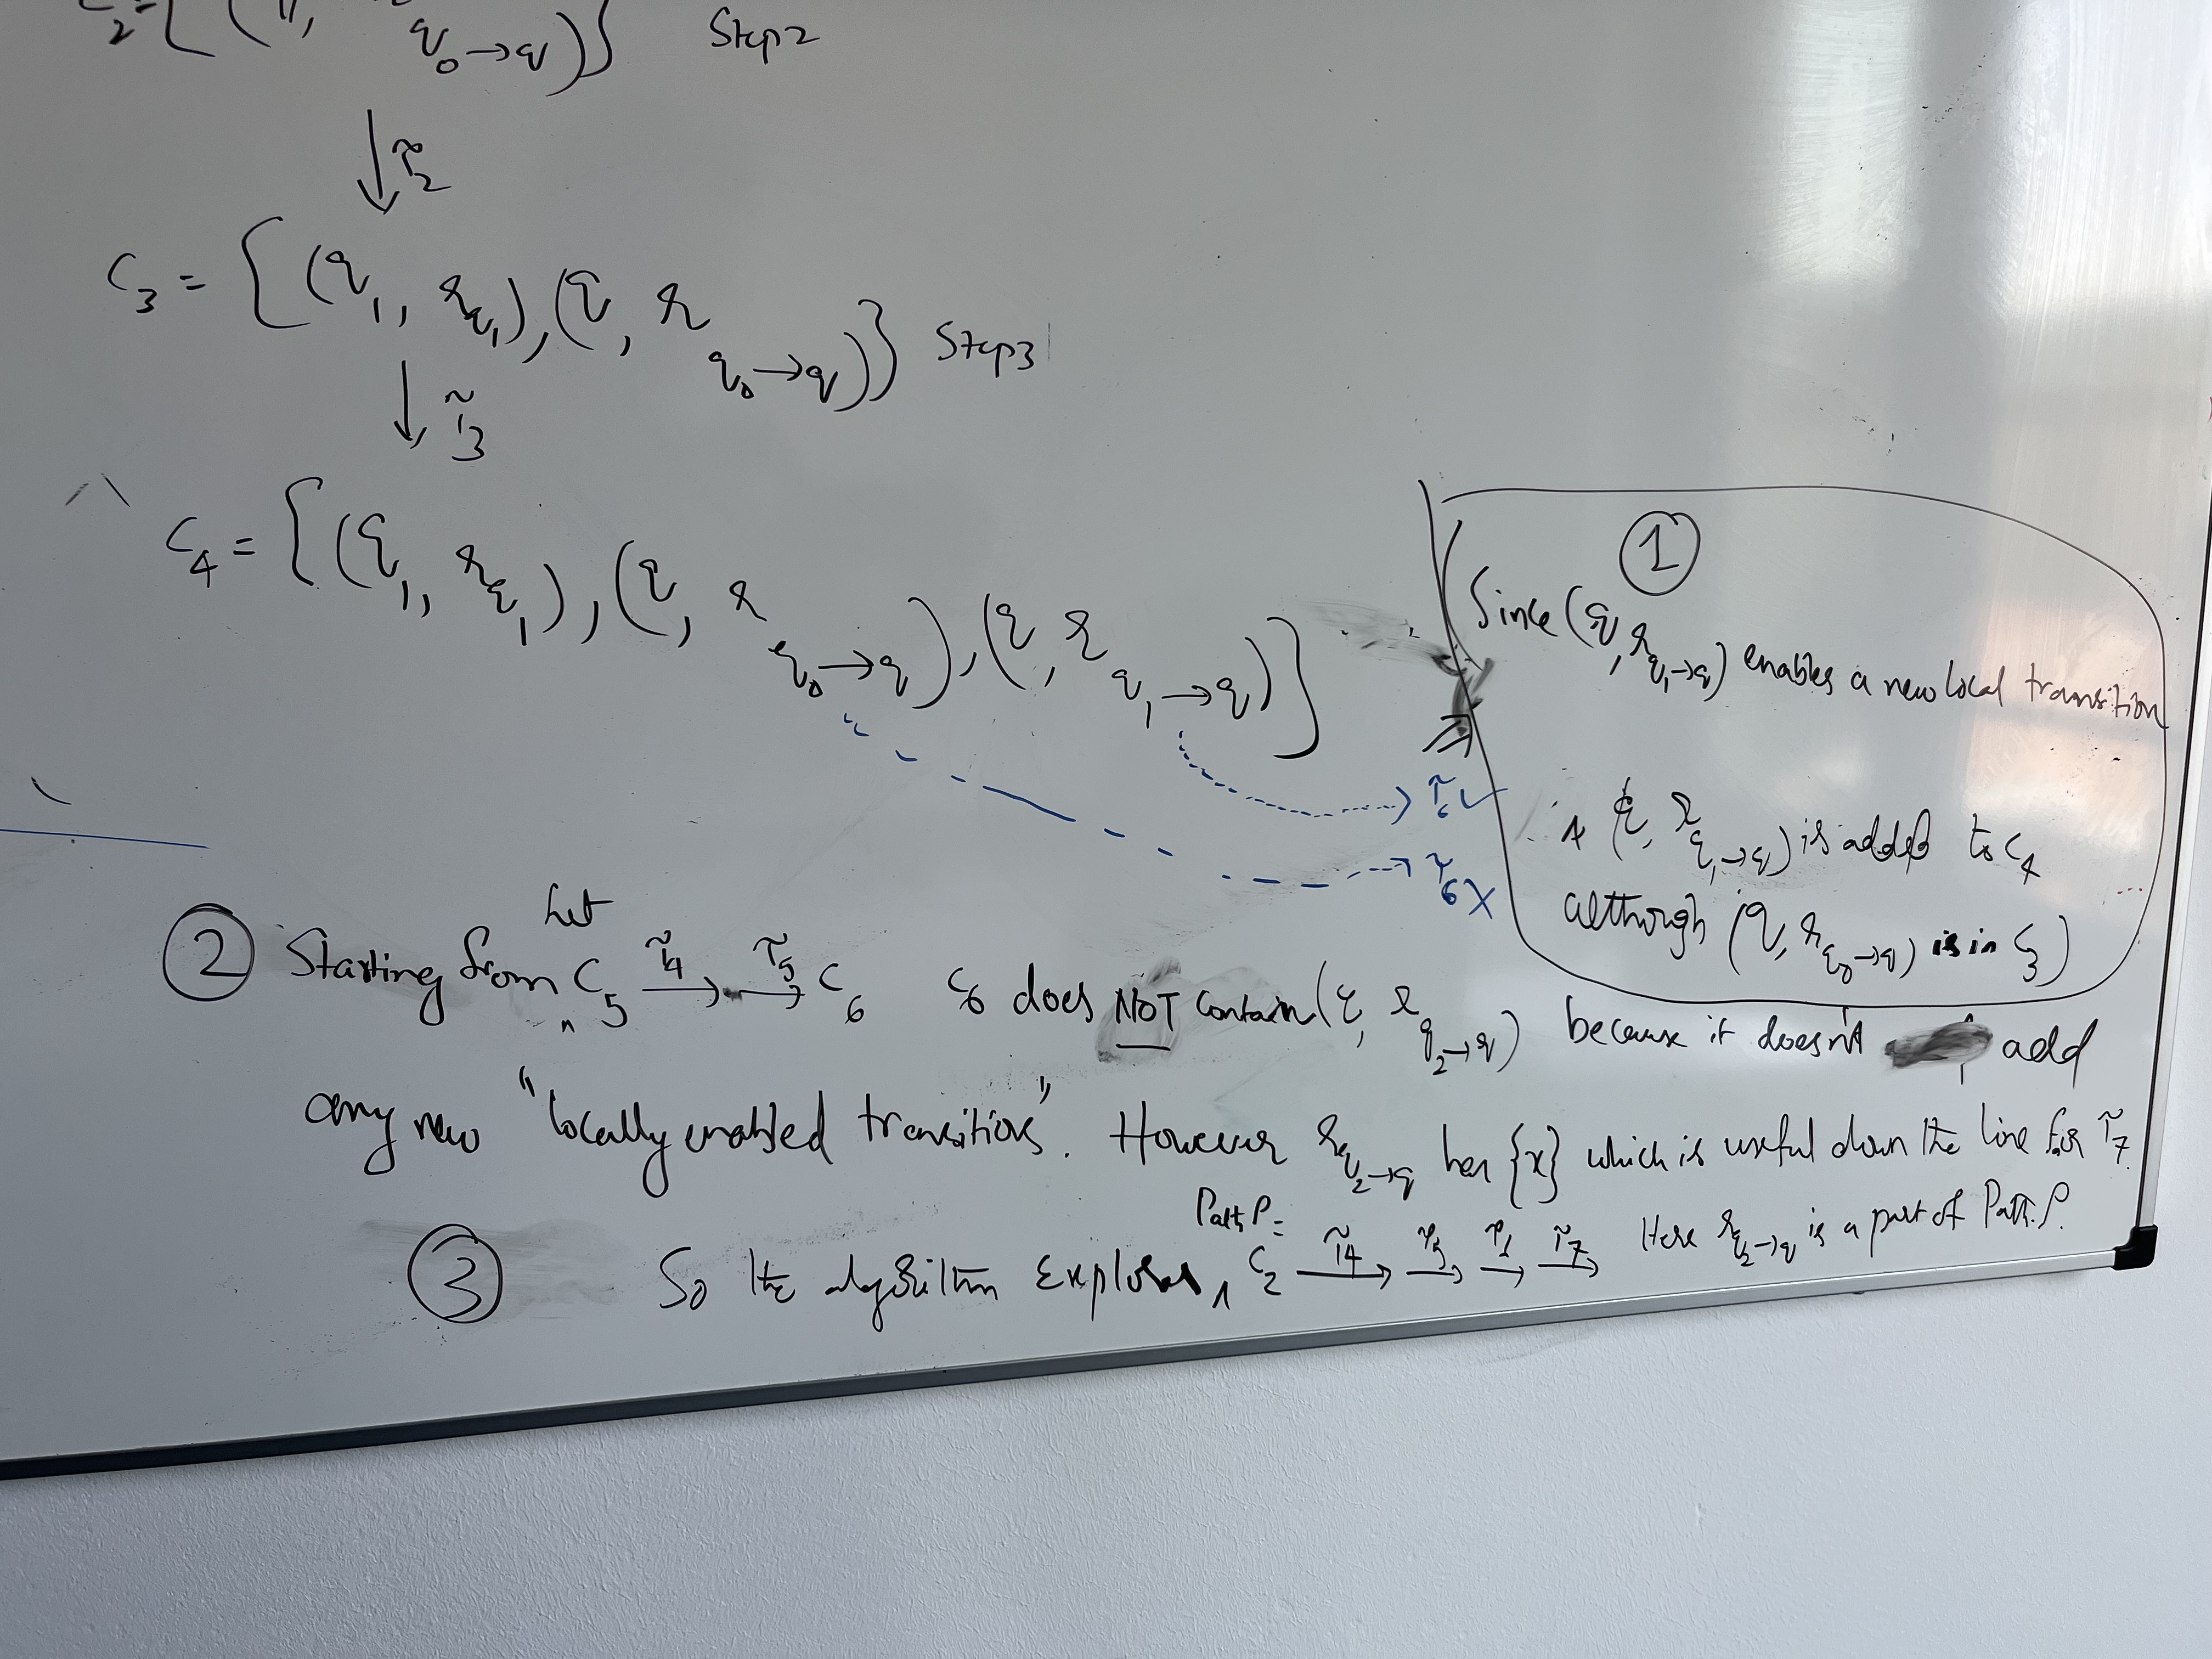 q₀→q)} Step2
↓ τ̃₂
C₃ = {(q₁, r_q₁), (q, r_q₀→q)} Step3
↓ τ̃₃
C₄ = {(q₁, r_q₁), (q, r_q₀→q), (q, r_q₁→q)}
①
Since (q, r_q₁→q) enables a new local transition
(q, r_q₁→q) is added to C₄
although (q, r_q₀→q) is in C₃)
τ̃₆ ✓
τ̃₆ X
② Starting from let C₅ —τ̃₄→ —τ̃₅→ C₆ C₆ does NOT contain (q, r_q₂→q) because it doesn't add
any new "locally enabled transitions". However r_q₂→q has {x} which is useful down the line for τ̃₇
③ So the algorithm explores Path ρ = C₂ —τ̃₄→ —τ̃₅→ → —τ̃₇→ Here r_q₂→q is a part of Path ρ.